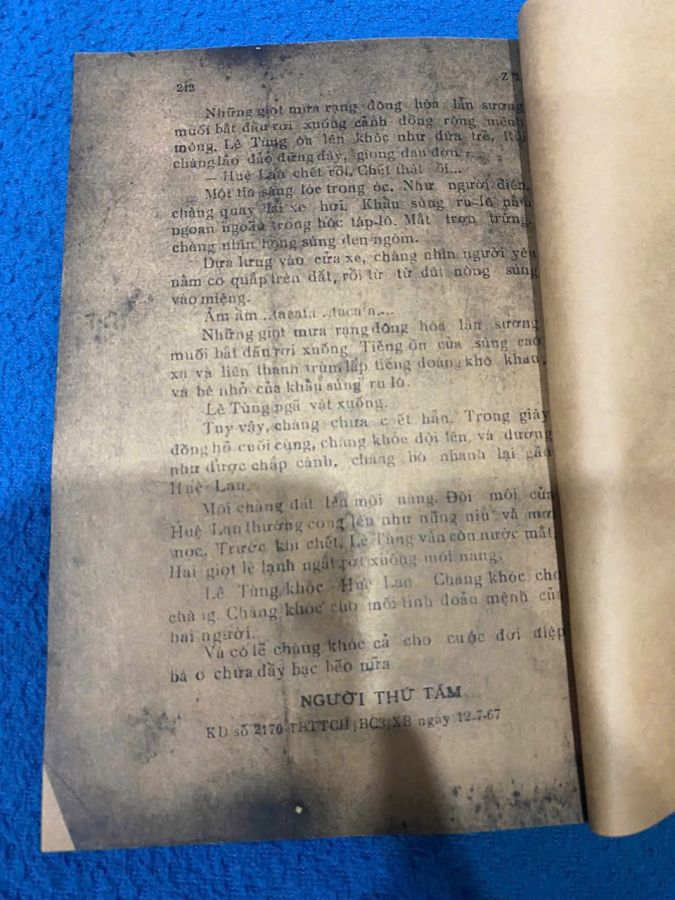 242
Z 2
Những giọt mưa rạng đông hòa lẫn sương
muối bắt đầu rơi xuống cánh đồng rộng mênh
mông. Lê Tùng òa lên khóc như đứa trẻ. Rồi
chàng lảo đảo đứng dậy, giọng đau đớn :
— Huệ Lan chết rồi. Chết thật rồi...
Một tia sáng lóe trong óc. Như người điên,
chàng quay lại xe hơi. Khẩu súng ru-lô nằm
ngoan ngoãn trong hóc táp-lô. Mắt trợn trừng,
chàng nhìn họng súng đen ngòm.
Dựa lưng vào cửa xe, chàng nhìn người yêu
nằm co quắp trên đất, rồi từ từ đút nòng súng
vào miệng.
Ầm ầm ..tacata ..tacata...
Những giọt mưa rạng đông hòa lẫn sương
muối bắt đầu rơi xuống. Tiếng ồn của súng cao
xạ và liên thanh trùm lấp tiếng đoàng khô khan,
và bé nhỏ của khẩu súng ru lô.
Lê Tùng ngã vật xuống.
Tuy vậy, chàng chưa chết hẳn. Trong giây
đồng hồ cuối cùng, chàng khỏe dội lên, và dường
như được chắp cánh, chàng bò nhanh lại gần
Huệ Lan.
Môi chàng đặt lên môi nàng. Đôi môi của
Huệ Lan thường cong lên như nũng nịu và mơi
móc. Trước khi chết, Lê Tùng vẫn còn nước mắt.
Hai giọt lệ lạnh ngắt rớt xuống môi nàng.
Lê Tùng khóc Huệ Lan Chàng khóc cho
chàng. Chàng khóc cho mối tình đoản mệnh của
hai người.
Và có lẽ chàng khóc cả cho cuộc đời điệp
báo chứa đầy bạc bẽo nữa
NGƯỜI THỨ TÁM
KD số 2170 TBTTCH/BC3/XB ngày 12.7-67